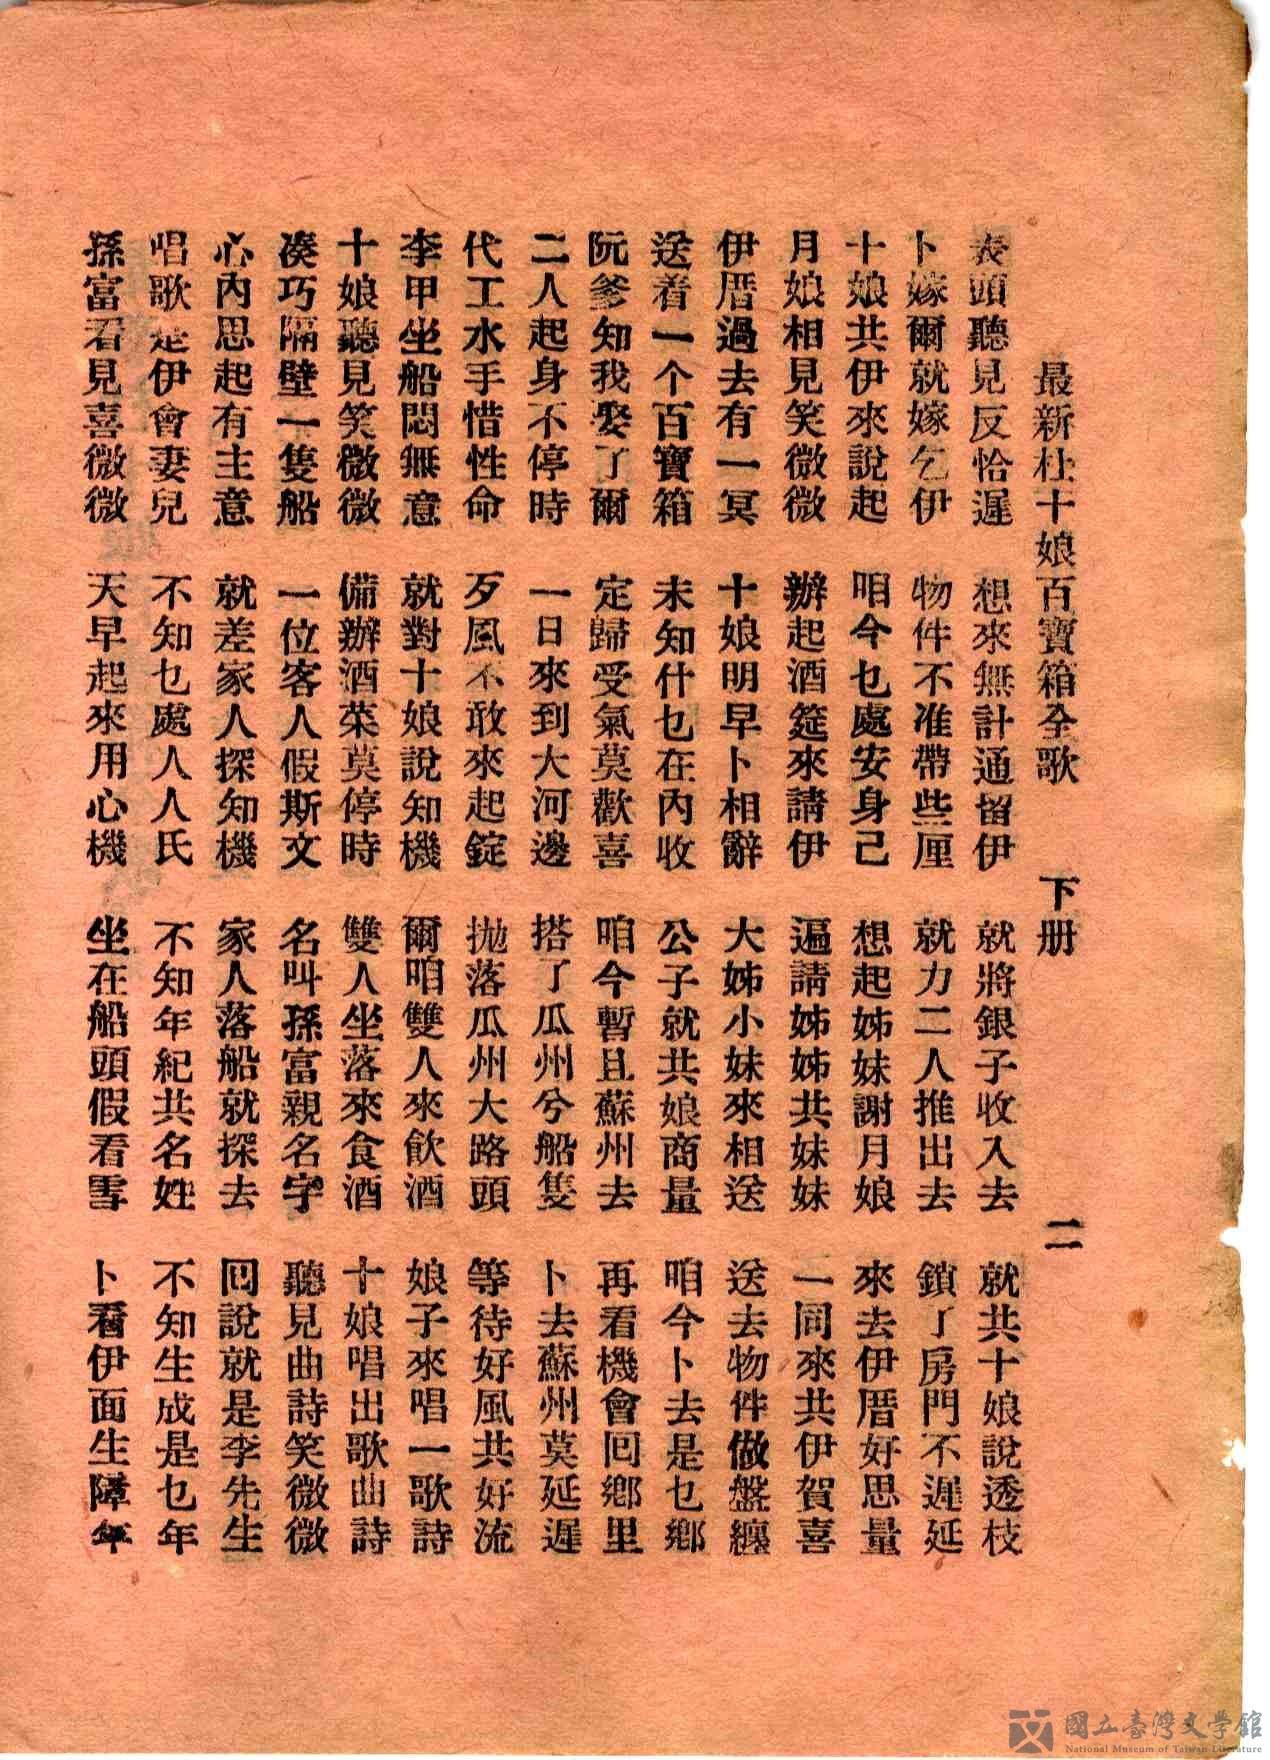 最新杜十娘百寶箱全歌　下册　二
表頭聽見反恰遲　想來無計通留伊　就將銀子收入去　就共十娘說透枝
卜嫁爾就嫁乞伊　物件不准帶些厘　就力二人推出去　鎖了房門不遲延
十娘共伊來說起　咱今乜處安身己　想起姊妹謝月娘　來去伊厝好思量
月娘相見笑微微　辦起酒筵來請伊　遍請姊姊共妹妹　一同來共伊賀喜
伊厝過去有一冥　十娘明早卜相辭　大姊小妹來相送　送去物件做盤纏
送着一个百寶箱　未知什乜在內收　公子就共娘商量　咱今卜去是乜鄉
阮爹知我娶了爾　定歸受氣莫歡喜　咱今暫且蘇州去　再看機會回鄉里
二人起身不停時　一日來到大河邊　搭了瓜州兮船隻　卜去蘇州莫延遲
代工水手惜性命　歹風不敢來起錠　拋落瓜州大路頭　等待好風共好流
李甲坐船悶無意　就對十娘說知機　爾咱雙人來飲酒　娘子來唱一歌詩
十娘聽見笑微微　備辦酒菜莫停時　雙人坐落來食酒　十娘唱出歌曲詩
凑巧隔壁一隻船　一位客人假斯文　名叫孫富親名字　聽見曲詩笑微微
心內思起有主意　就差家人探知機　家人落船就探去　回說就是李先生
唱歌是伊會妻兒　不知乜處人人氏　不知年紀共名姓　不知生成是乜年
孫富看見喜微微　天早起來用心機　坐在船頭假看雪　卜看伊面生障年
國立臺灣文學館
National Museum of Taiwan Literature